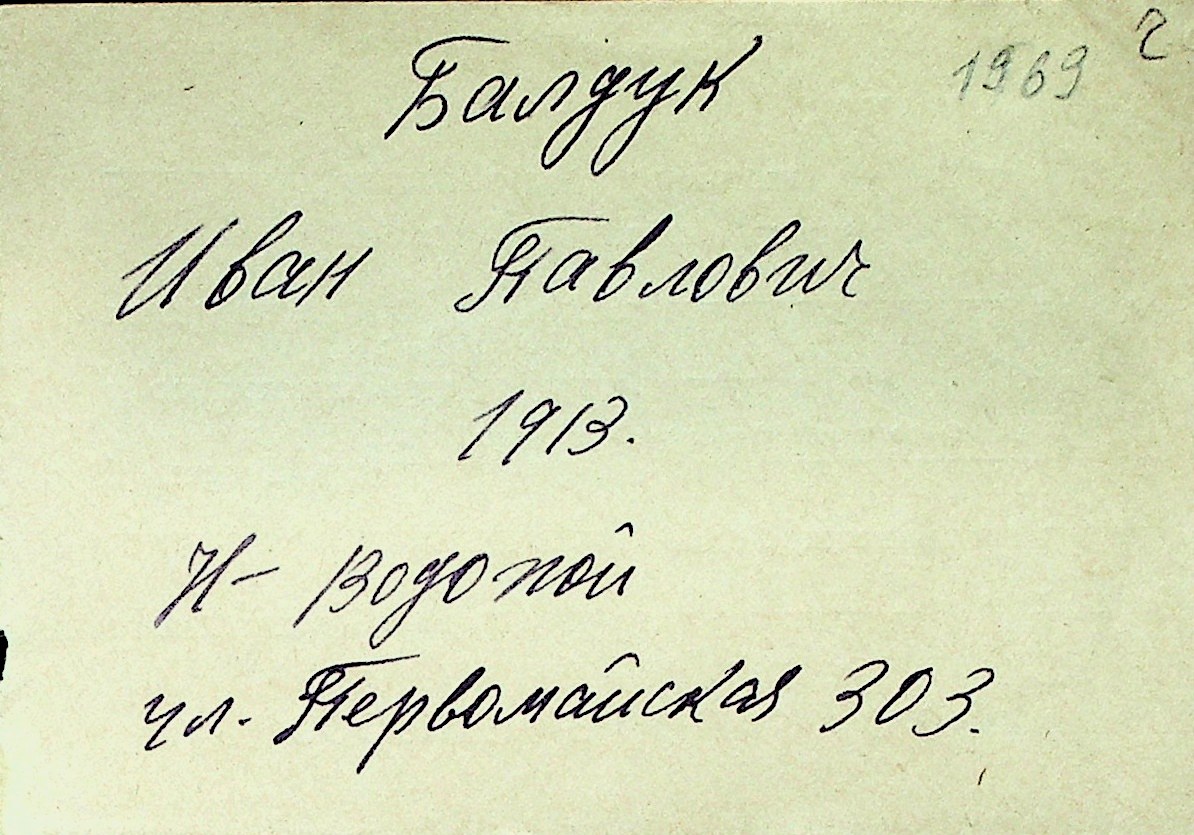 Балдук 1969
Иван Павлович
1913.
Н- Водопой
ул. Первомайская 303.